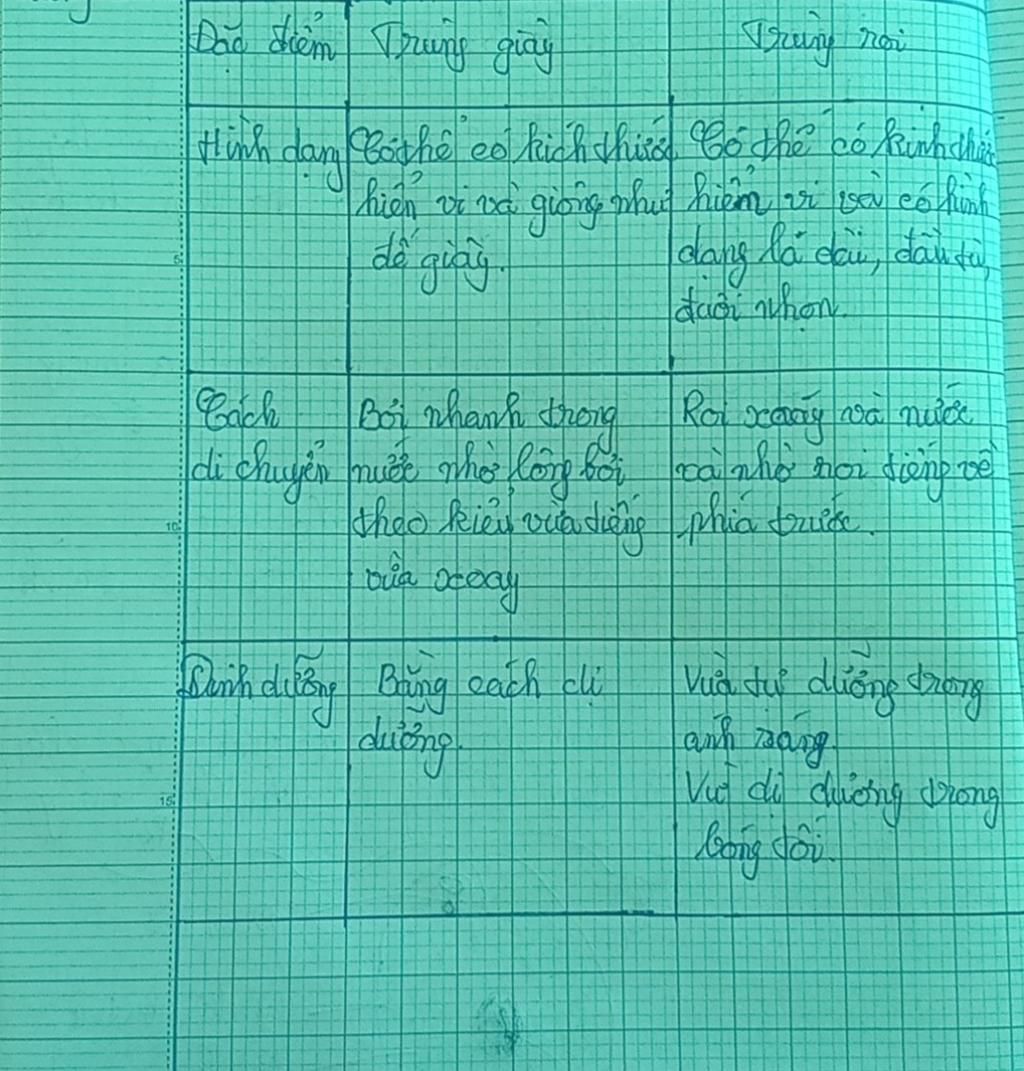 Đặc điểm
Trùng giày
Trùng roi
Hình dạng
Có thể có kích thước
hiển vi và giống như
đế giày.
Có thể có kính thước
hiểm vi và có hình
dạng lá dài, đầu tù,
đuôi nhọn.
Cách
di chuyển
Bơi nhanh trong
nước nhờ lông bơi
theo kiểu vừa tiếng
vừa xoay
Roi xoáy và nước
và nhờ roi tiếng về
phía trước.
Dinh dưỡng
Bằng cách dị
dưỡng.
Vừa tự dưỡng trong
ánh sáng.
Vừ dị dưỡng trong
bóng tối.
5
10
15